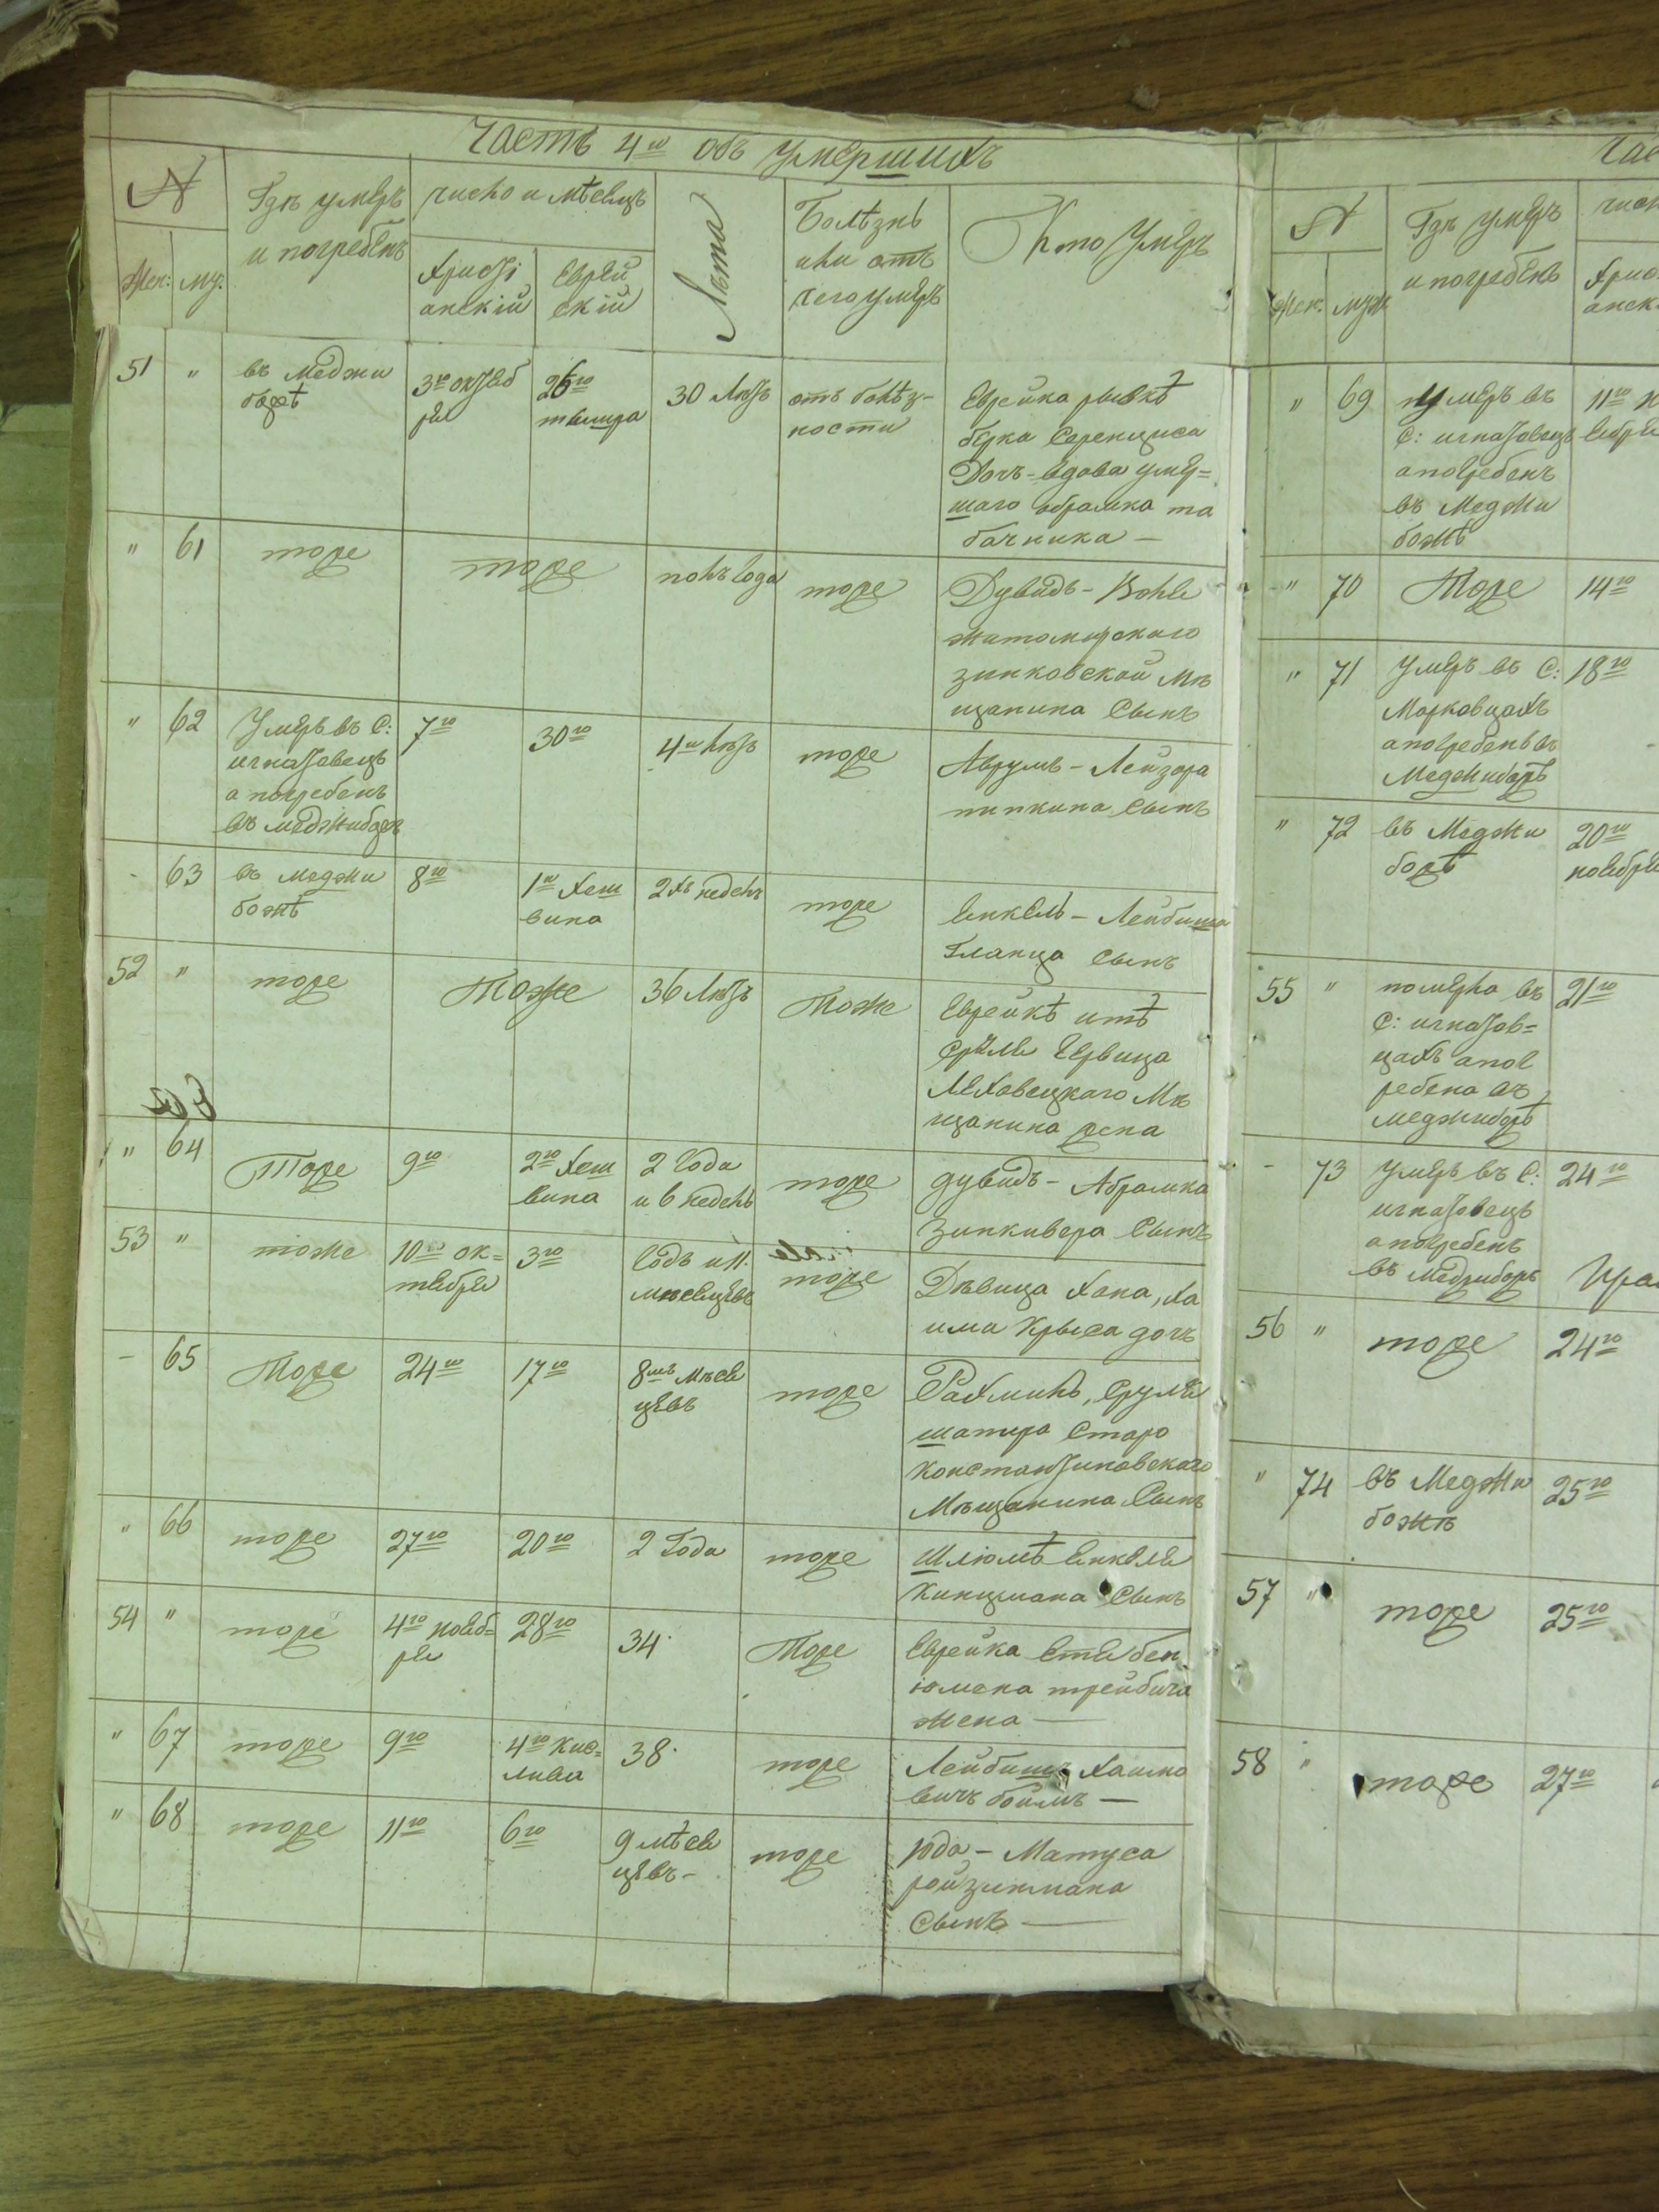 Часть 4ю объ умершихъ
№
Жен: му:
Гдѣ умеръ
и погребенъ
число и мѣсецъ
Христі
анскій
Еврей
скій
Лѣта
Болѣзнь
или отъ
чего умеръ
Кто умеръ
51 "
въ Меджи
божѣ
3го октеб
ре
26го
тышра
30 лѣтъ
отъ болѣз-
ности
Еврейка рывкѣ
берка
дочь-вдова умер=
шаго абрамка та
бачника —
" 61
тоже
тоже
полъ года
тоже
Дувидъ - Волве
житомирскаго
зинковской мѣ
щанина сынъ
" 62
Умеръ въ с:
игнатовецъ
а погребенъ
въ меджибожъ
7го
30го
4ы лѣтъ
тоже
Аврумъ - Лейзора
пипкина сынъ
- 63
въ меджи
божѣ
8го
1го Хеш
вина
2хъ недель
тоже
Енкель - Лейбиша
Гланца сынъ
52 "
тоже
тоже
36 лѣтъ
тоже
Еврейкѣ итѣ
сруля Гервица
Леховецкаго мѣ
щанина жена
" 64
тоже
9го
2го хеш
вина
2 года
и 6 недель
тоже
дувидъ - Абрамка
Зинкивера сынъ
53 "
тоже
10го ок=
тебре
3го
годъ и 11.
мѣсецевъ
тоже
Дѣвица хана, ха
има крыса дочь
- 65
тоже
24го
17го
8мъ мѣсе
цевъ
тоже
Рахмиль, сруля
шапира старо
константиновскаго
мѣщанина сынъ
" 66
тоже
27го
20го
2 года
тоже
Шлюмѣ енкеля
кинцмана сынъ
54 "
тоже
4го нояб=
ре
28го
34.
тоже
Еврейка етя бен
юмена трейбича
жена —
" 67
тоже
9го
4го кис=
лива
38.
тоже
Лейбишъ хаимо
вичъ боимъ —
" 68
тоже
11го
6го
9 мѣсе
цевъ -
тоже
юда - матуса
ройзинмана
сынъ —
Час
№
Жен: муж
Гдѣ умеръ
и погребенъ
числ
Хрис
анск
" 69
умеръ въ
с: игнатовецъ
а погребенъ
въ меджи
божѣ
11го н
ебре
" 70
тоже
14го
" 71
умеръ въ с:
Марковцахъ
а погребенъ въ
Меджибожѣ
18го
" 72
въ Меджи
божѣ
20го
ноебре
55 "
померла въ
с: игнатов=
цахъ апог
ребена въ
меджибожѣ
21го
- 73
умеръ въ с:
игнатовецъ
а погребенъ
въ меджибожъ
24го
56 "
тоже
24го
" 74
въ меджи
божѣ
25го
57 "
тоже
25го
58 "
тоже
27го